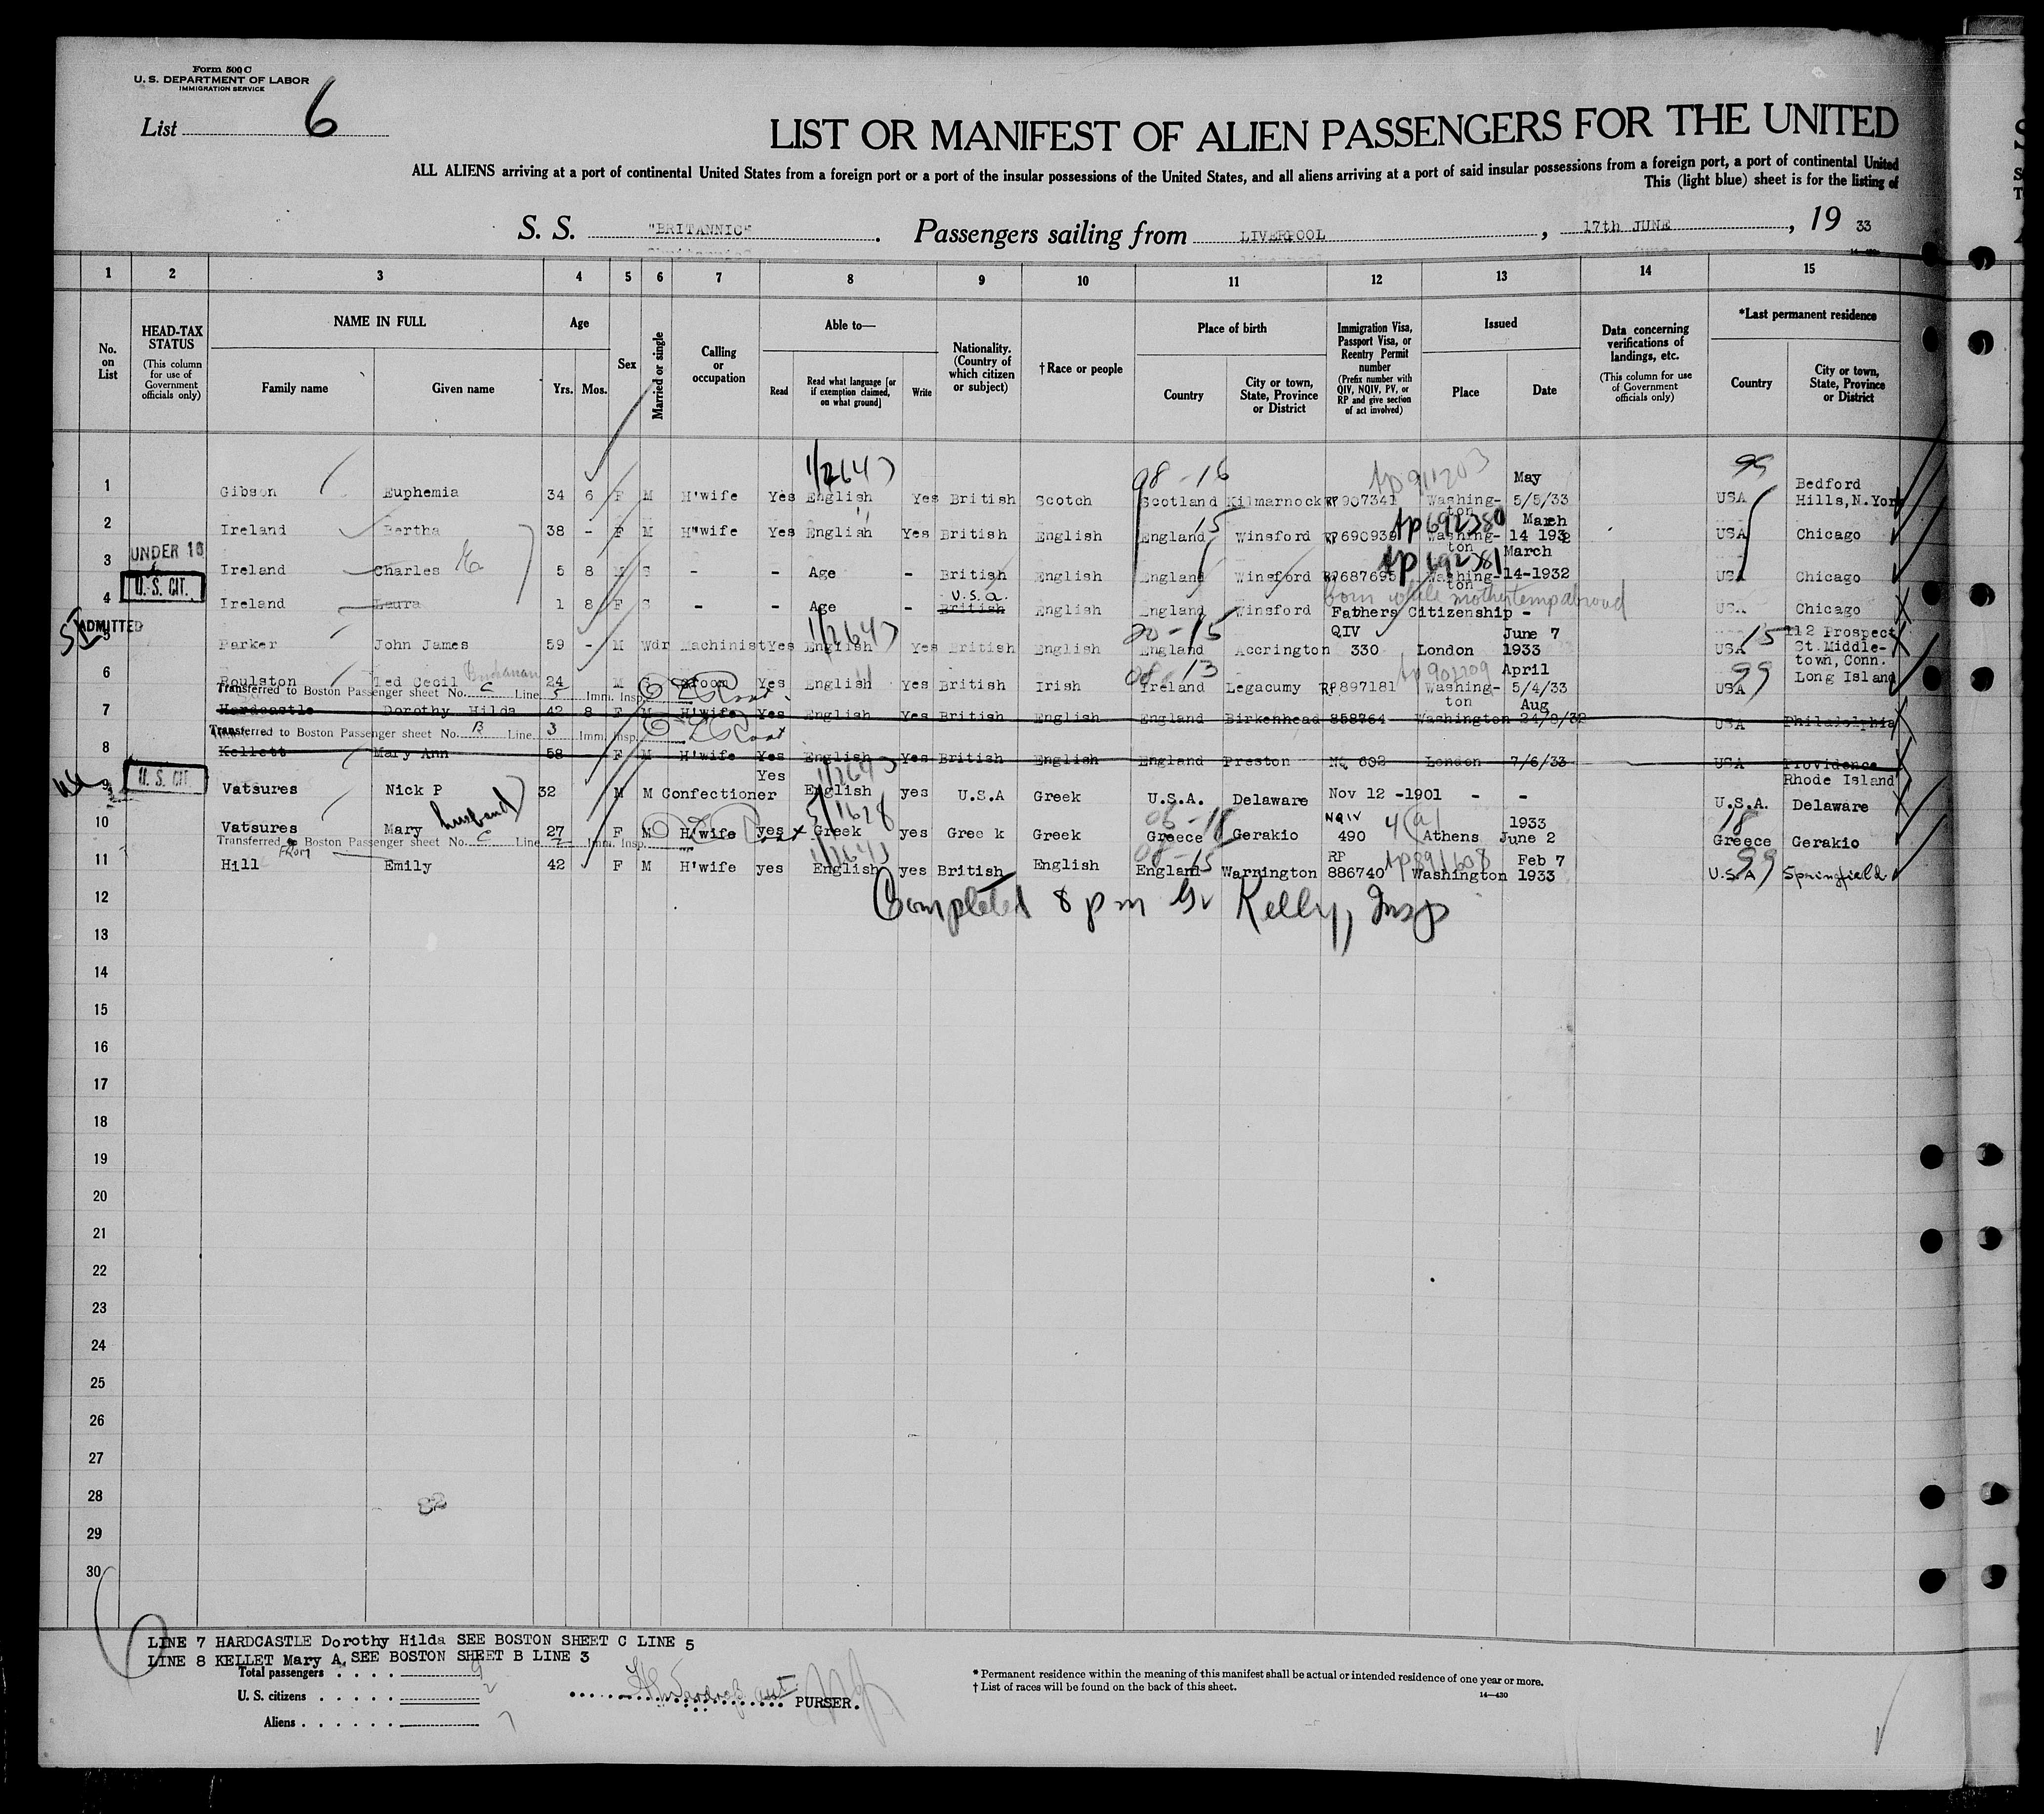 Form 500 C
U. S. DEPARTMENT OF LABOR
IMMIGRATION SERVICE
List 6
LIST OR MANIFEST OF ALIEN PASSENGERS FOR THE UNITED
ALL ALIENS arriving at a port of continental United States from a foreign port or a port of the insular possessions of the United States, and all aliens arriving at a port of said insular possessions from a foreign port, a port of continental United
This (light blue) sheet is for the listing of
S. S. "BRITANNIC". Passengers sailing from LIVERPOOL, 17th JUNE, 19 33
1 2 3 4 5 6 7 8 9 10 11 12 13 14 15
No. on List
HEAD-TAX STATUS (This column for use of Government officials only)
NAME IN FULL Family name Given name
Age Yrs. Mos.
Sex
Married or single
Calling or occupation
Able to— Read Read what language [or if exemption claimed, on what ground] Write
Nationality. (Country of which citizen or subject)
†Race or people
Place of birth Country City or town, State, Province or District
Immigration Visa, Passport Visa, or Reentry Permit number (Prefix number with QIV, NQIV, PV, or RP and give section of act involved)
Issued Place Date
Data concerning verifications of landings, etc. (This column for use of Government officials only)
*Last permanent residence Country City or town, State, Province or District
1/2647 08-16 99
1 Gibson Euphemia 34 6 F M H'wife Yes English Yes British Scotch Scotland Kilmarnock RP907341 Washington May 5/5/33 USA Bedford Hills, N.York
2 Ireland Bertha 38 - F M H"wife Yes English Yes British English England 15 Winsford RP690939 Ap692380 Washington March 14 1932 USA Chicago
UNDER 16
3 Ireland Charles 5 8 M S - - Age - British English England Winsford RP687695 Ap692381 Washington March 14-1932 USA Chicago
U.S. CIT.
born while mother temp abroad
4 Ireland Laura 1 8 F S - - Age - U.S.A. British English England Winsford Fathers Citizenship - USA Chicago
ADMITTED
1/2647 20-15 15
5 Parker John James 59 - M Wdr Machinist Yes English Yes British English England Accrington QIV 330 London June 7 1933 USA 112 Prospect St. Middletown, Conn.
6 Roulston Ted Cecil Buchanan 24 M S Groom Yes English Yes British Irish 08-13 Ireland Legacumy RP897181 Washington April 5/4/33 USA 99 Long Island
Transferred to Boston Passenger sheet No. C Line 5 Imm. Insp.
7 Hardcastle Dorothy Hilda 42 8 F M H'wife Yes English Yes British English England Birkenhead 858764 Washington Aug 24/8/32 USA Philadelphia
Transferred to Boston Passenger sheet No. B Line 3 Imm. Insp.
8 Kellett Mary Ann 58 F M H'wife Yes English Yes British English England Preston NQ 602 London 7/6/33 USA Providence Rhode Island
U.S. CIT
9 Vatsures Nick P 32 M M Confectioner Yes English yes U.S.A Greek U.S.A. Delaware Nov 12 -1901 - - U.S.A. Delaware
husband
10 Vatsures Mary 27 F M H'wife yes Greek yes Gree k Greek Greece Gerakio NQIV 490 4(a) Athens 1933 June 2 18 Greece Gerakio
Transferred to Boston Passenger sheet No. C Line Imm. Insp.
From
11 Hill Emily 42 F M H'wife yes English yes British English England 15 Warrington RP 886740 Ap891608 Washington Feb 7 1933 U.S.A 99 Springfield
Completed 8 pm Kelly, Insp
12
13
14
15
16
17
18
19
20
21
22
23
24
25
26
27
28
29
30
82
LINE 7 HARDCASTLE Dorothy Hilda SEE BOSTON SHEET C LINE 5
LINE 8 KELLET Mary A. SEE BOSTON SHEET B LINE 3
Total passengers . . . . 9
U. S. citizens . . . . . 2
Aliens . . . . . . 7
PURSER.
* Permanent residence within the meaning of this manifest shall be actual or intended residence of one year or more.
† List of races will be found on the back of this sheet.
14—430